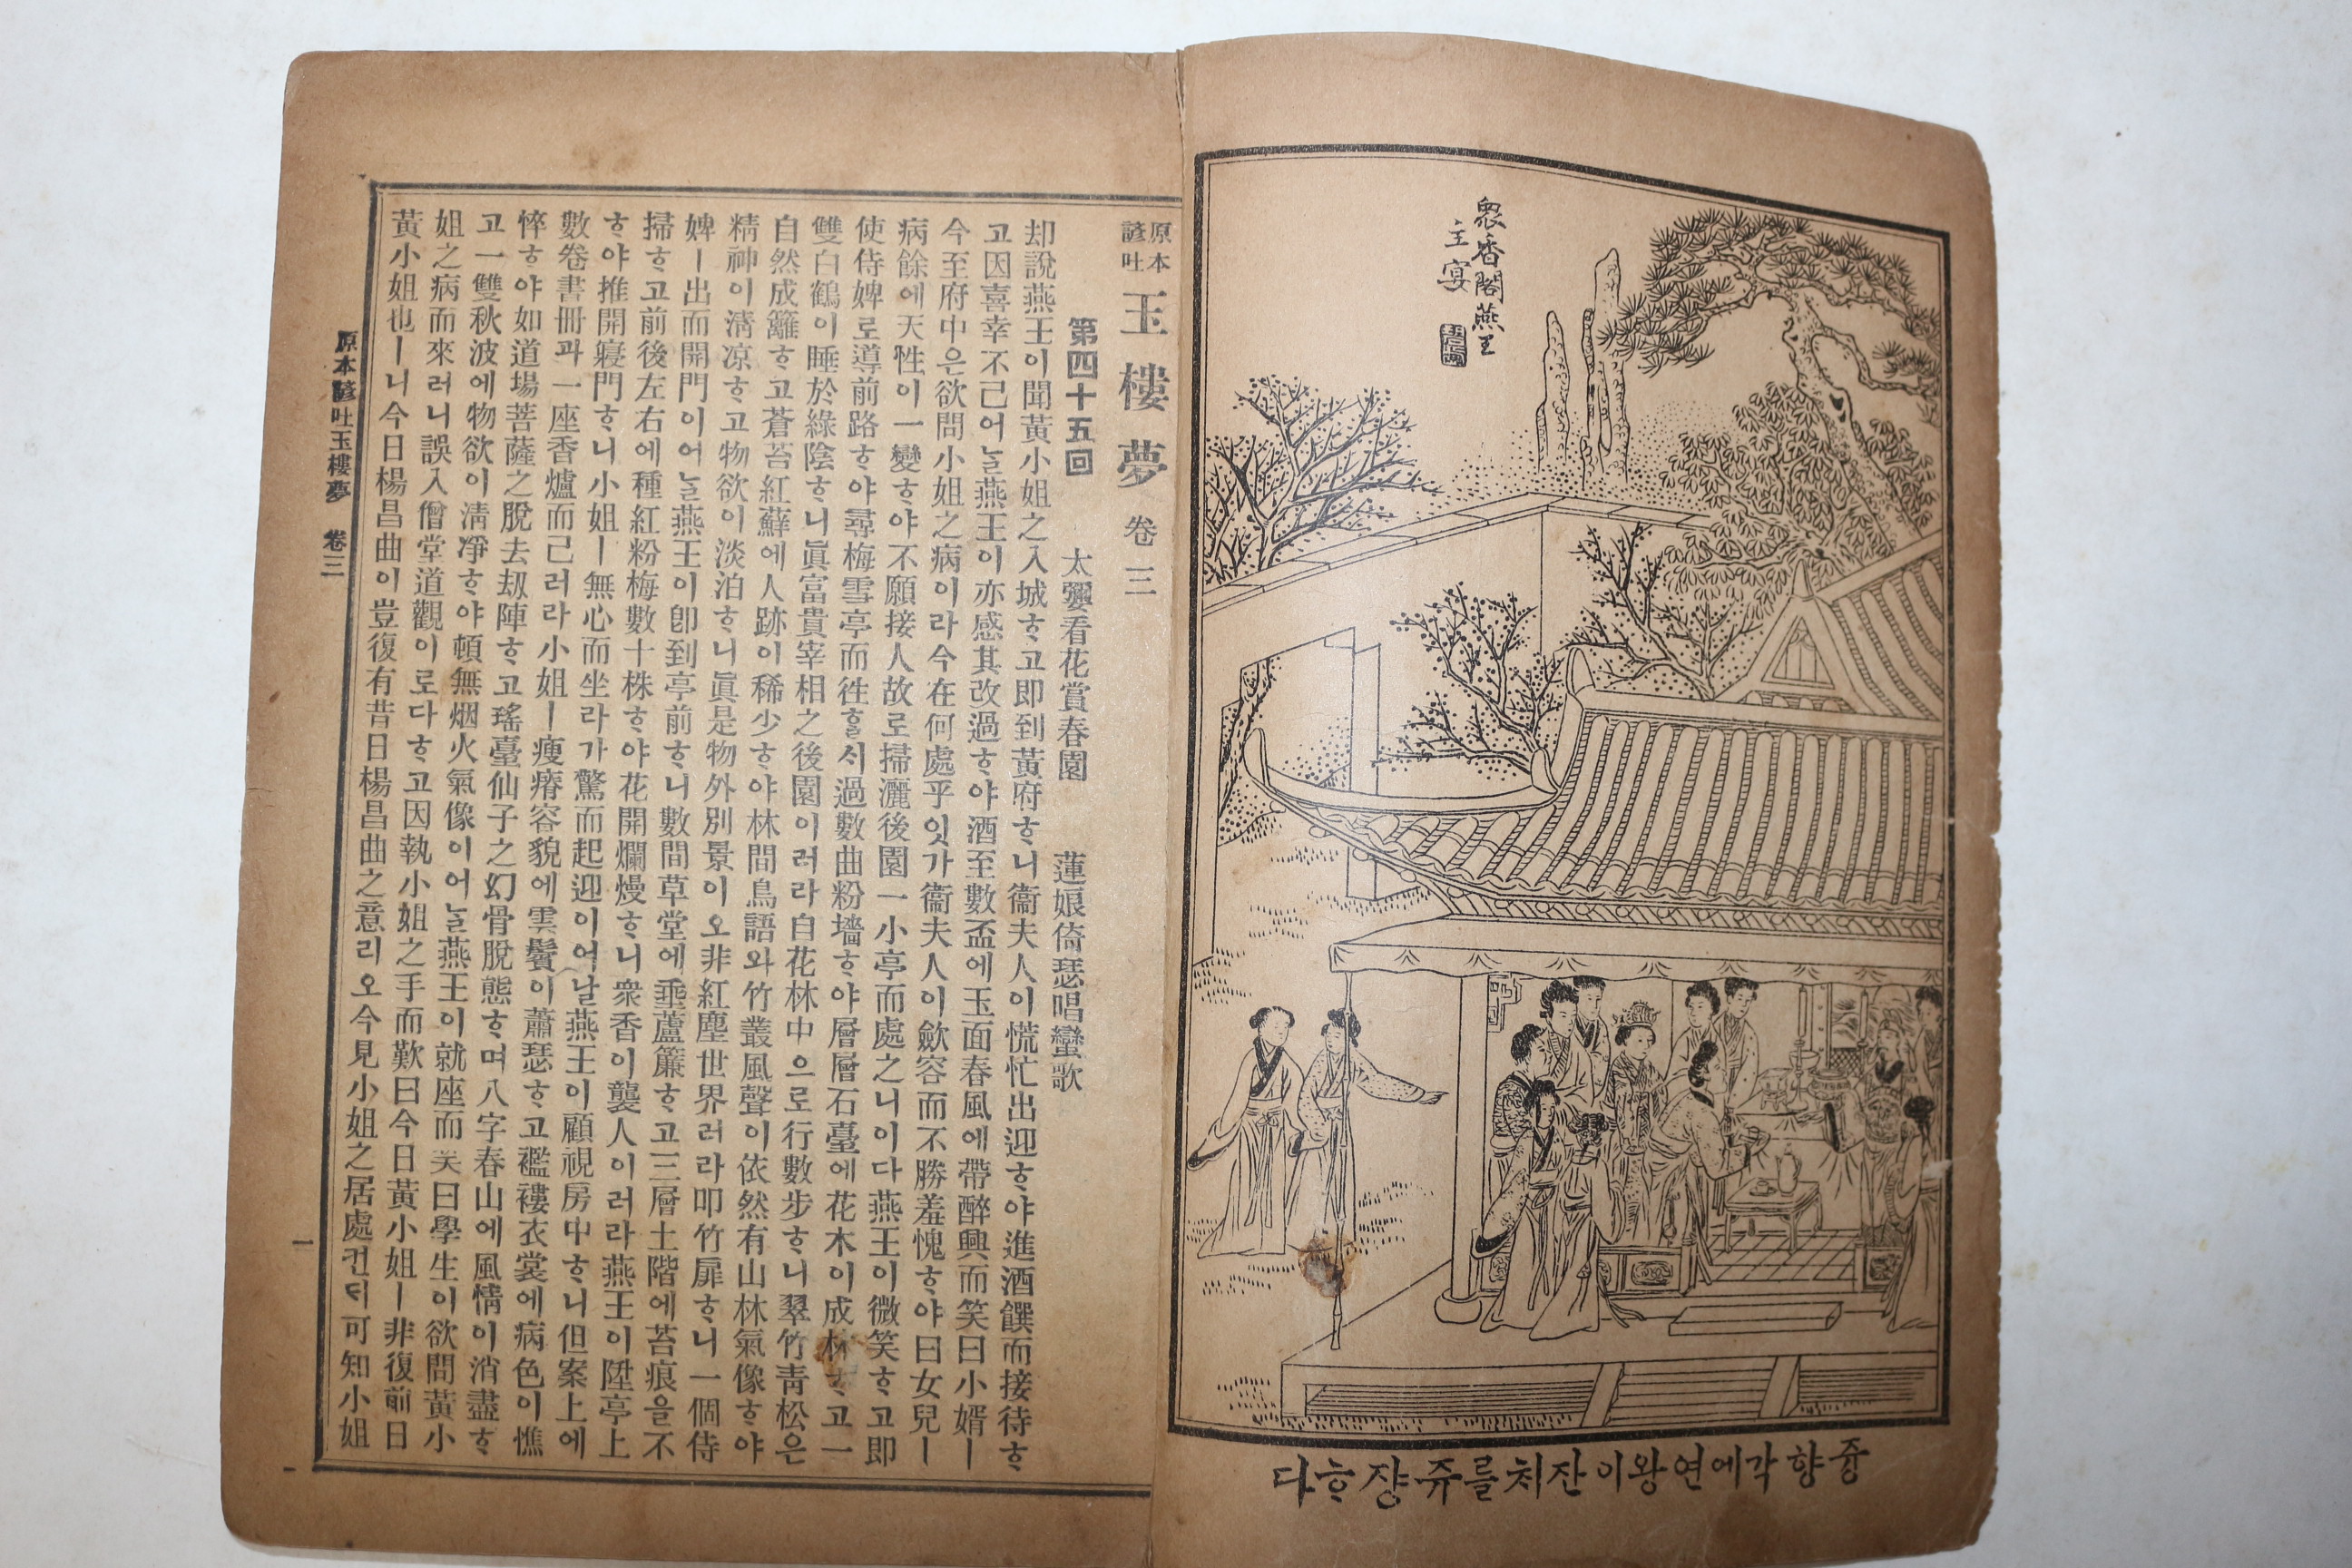 衆香閣燕王
主宴
즁향각에연왕이잔치를쥬쟝ᄒᆞ다
原本
諺吐
玉樓夢 卷三
第四十五回 太孁看花賞春園 蓮娘倚瑟唱蠻歌
却說燕王이聞黃小姐之入城ᄒᆞ고即到黃府ᄒᆞ니衞夫人이慌忙出迎ᄒᆞ야進酒饌而接待ᄒᆞ
고因喜幸不己어ᄂᆞᆯ燕王이亦感其改過ᄒᆞ야酒至數盃에玉面春風에帶醉興而笑曰小婿ㅣ
今至府中은欲問小姐之病이라今在何處乎잇가衞夫人이歛容而不勝羞愧ᄒᆞ야曰女兒ㅣ
病餘에天性이一變ᄒᆞ야不願接人故로掃灑後園一小亭而處之니이다燕王이微笑ᄒᆞ고即
使侍婢로導前路ᄒᆞ야尋梅雪亭而徃ᄒᆞᆯᄉᆡ過數曲粉墻ᄒᆞ야層層石臺에花木이成林ᄒᆞ고一
雙白鶴이睡於綠陰ᄒᆞ니眞富貴宰相之後園이러라自花林中으로行數步ᄒᆞ니翠竹靑松은
自然成籬ᄒᆞ고蒼苔紅蘚에人跡이稀少ᄒᆞ야林間鳥語와竹叢風聲이依然有山林氣像ᄒᆞ야
精神이淸凉ᄒᆞ고物欲이淡泊ᄒᆞ니眞是物外別景이오非紅塵世界러라叩竹扉ᄒᆞ니一個侍
婢ㅣ出而開門이어ᄂᆞᆯ燕王이卽到亭前ᄒᆞ니數間草堂에垂蘆簾ᄒᆞ고三層土階에苔痕을不
掃ᄒᆞ고前後左右에種紅粉梅數十株ᄒᆞ야花開爛熳ᄒᆞ니衆香이襲人이러라燕王이陞亭上
ᄒᆞ야推開寢門ᄒᆞ니小姐ㅣ無心而坐라가驚而起迎이어날燕王이顧視房中ᄒᆞ니但案上에
數卷書冊과一座香爐而己러라小姐ㅣ瘦瘠容貌에雲鬢이蕭瑟ᄒᆞ고襤褸衣裳에病色이憔
悴ᄒᆞ야如道場菩薩之脫去刼陣ᄒᆞ고瑤臺仙子之幻骨脫態ᄒᆞ며八字春山에風情이消盡ᄒᆞ
고一雙秋波에物欲이淸淨ᄒᆞ야頓無烟火氣像이어ᄂᆞᆯ燕王이就座而笑曰學生이欲問黃小
姐之病而來러니誤入僧堂道觀이로다ᄒᆞ고因執小姐之手而歎曰今日黃小姐ㅣ非復前日
黃小姐也ㅣ니今日楊昌曲이豈復有昔日楊昌曲之意리오今見小姐之居處컨ᄃᆡ可知小姐
原本諺吐玉樓夢 卷三
一